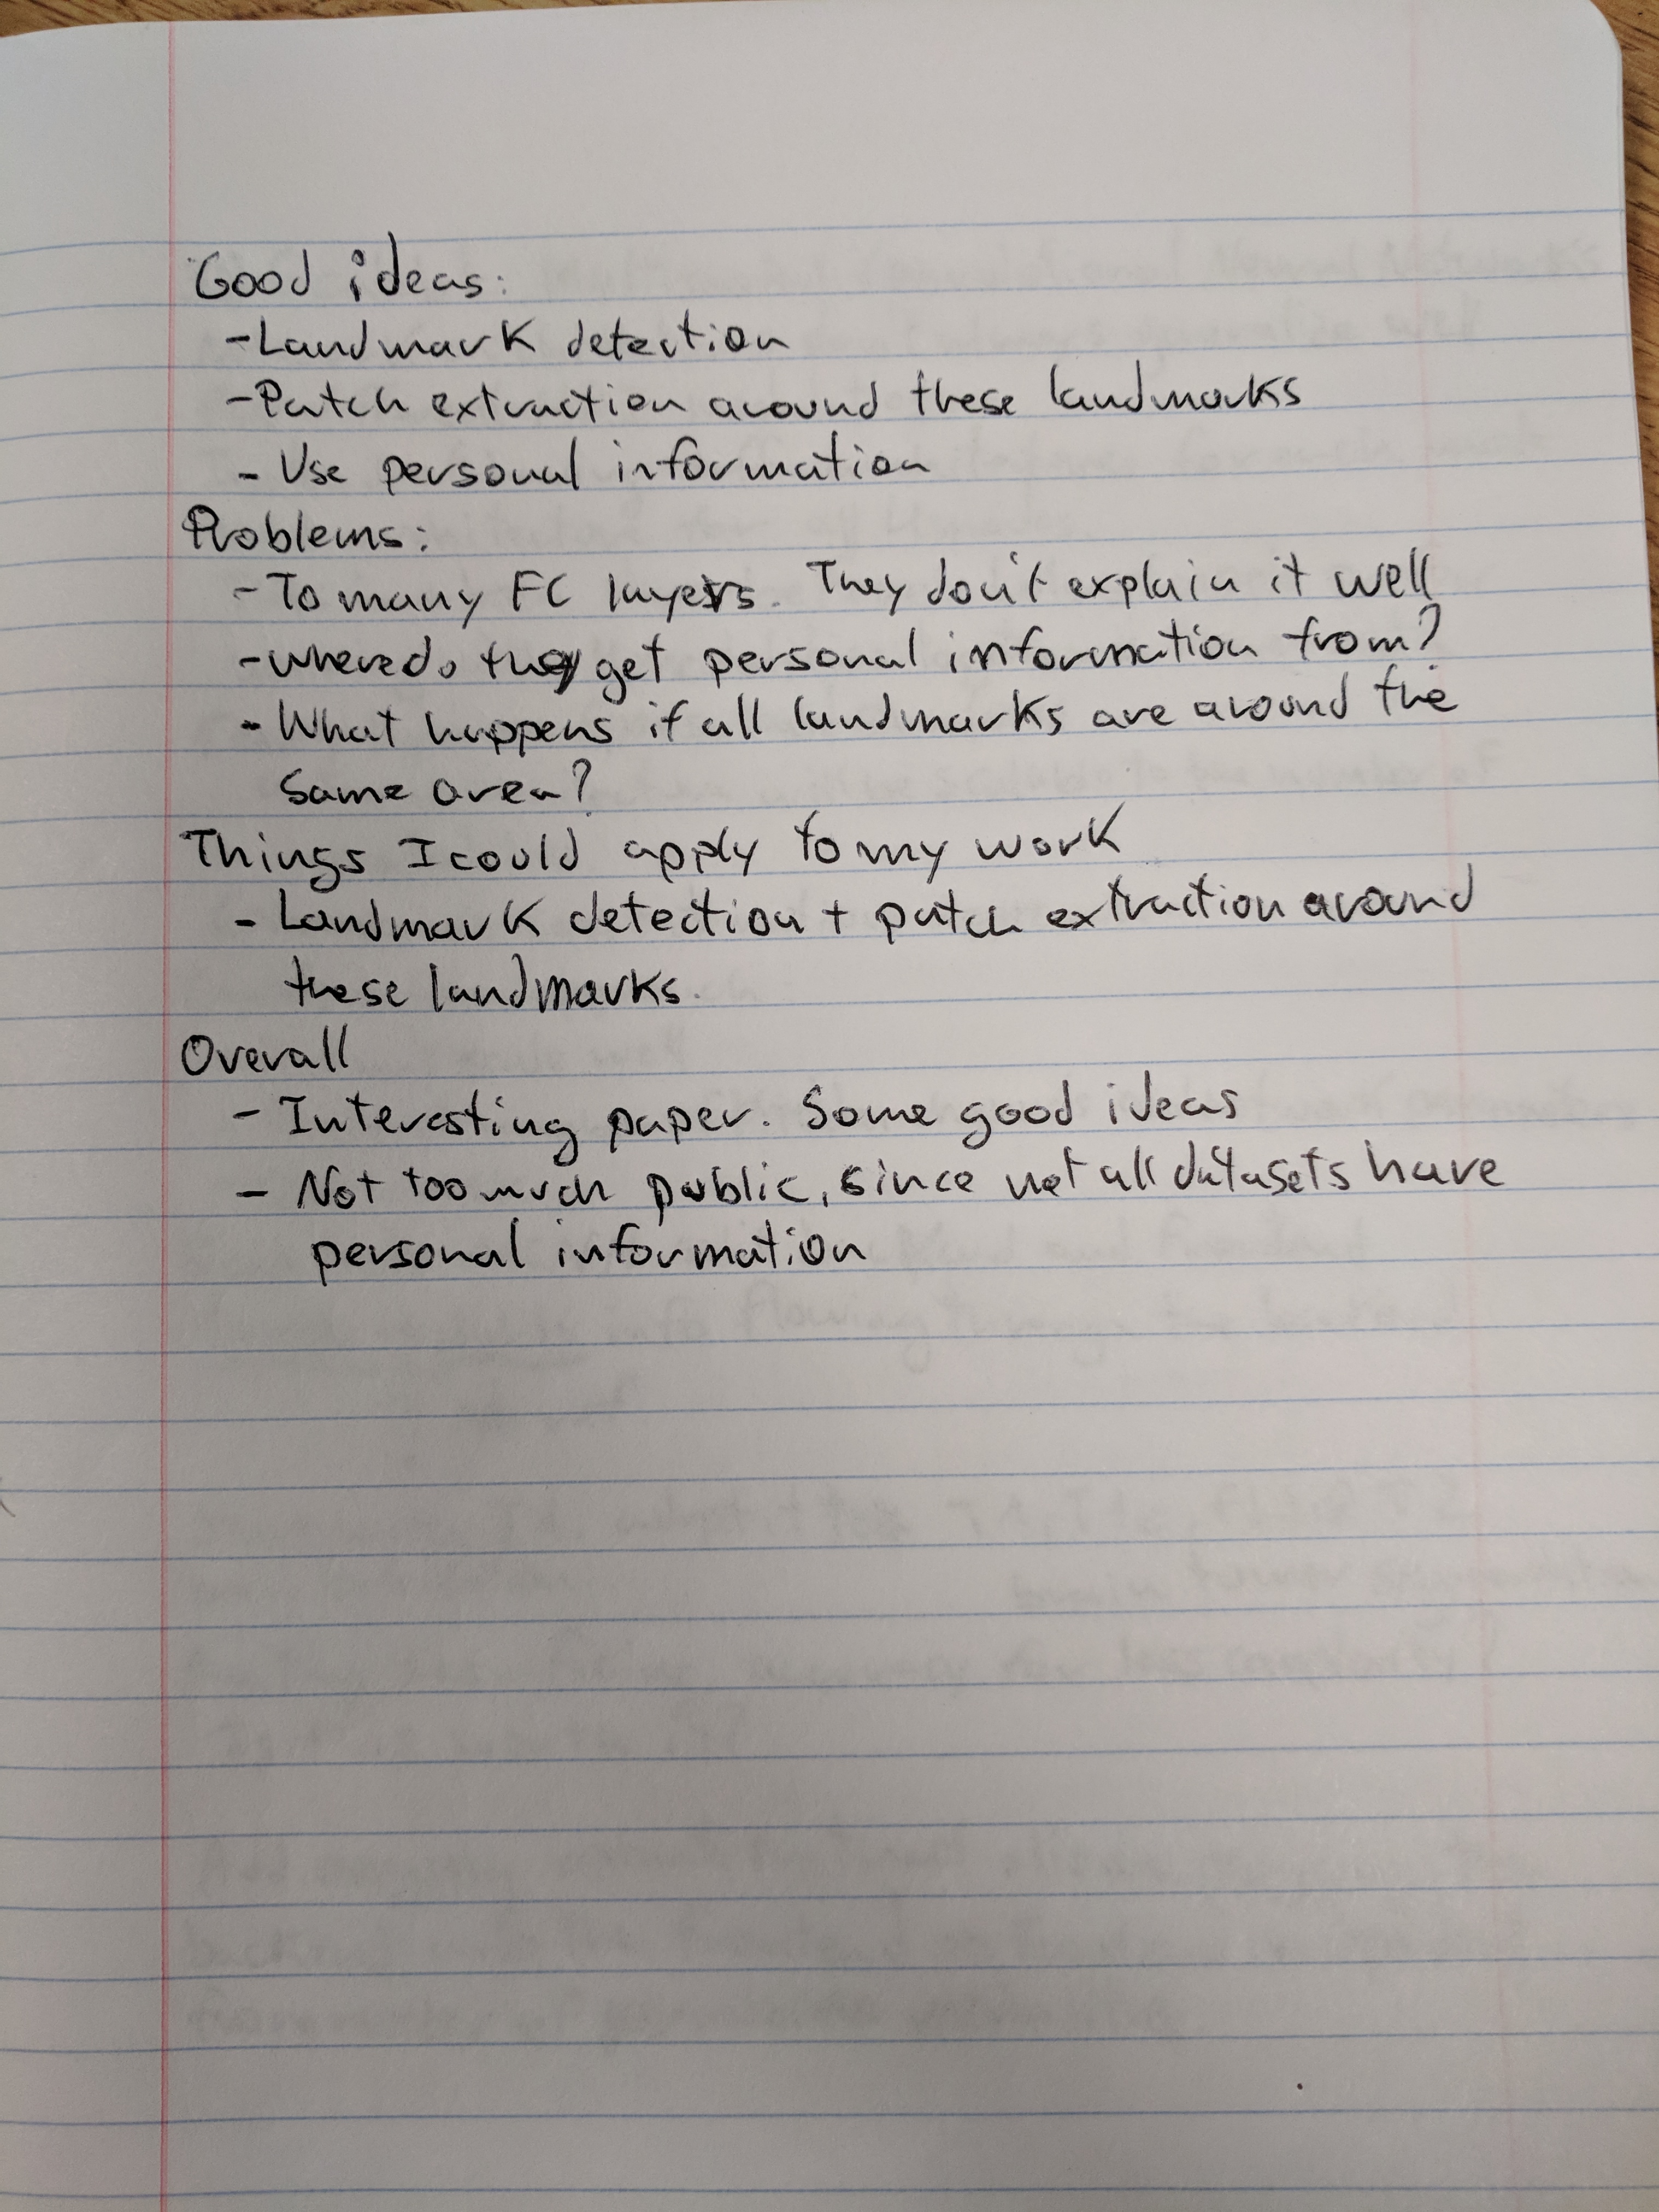 Good ideas:
- Landmark detection
- Patch extraction around these landmarks
- Use personal information
Problems:
- To many FC layers. They don't explain it well
- where do they get personal information from?
- What happens if all landmarks are around the
same area?
Things I could apply to my work
- Landmark detection + patch extraction around
these landmarks.
Overall
- Interesting paper. Some good ideas
- Not too much public, since not all datasets have
personal information